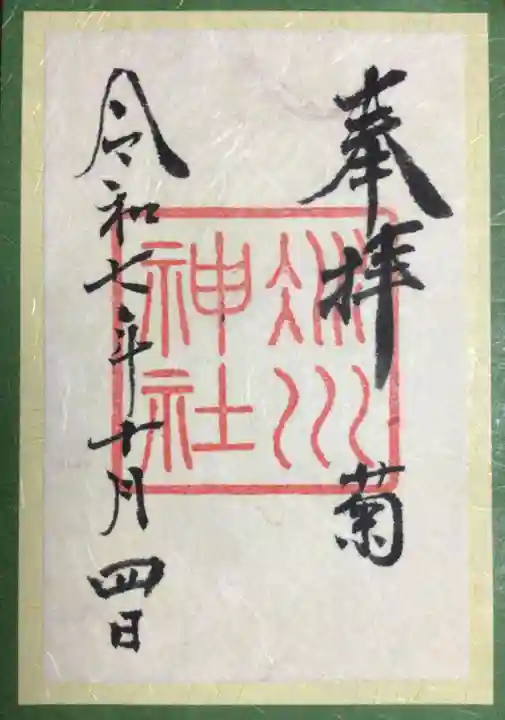 奉拝 菊
氷川
神社
令和七年十月四日